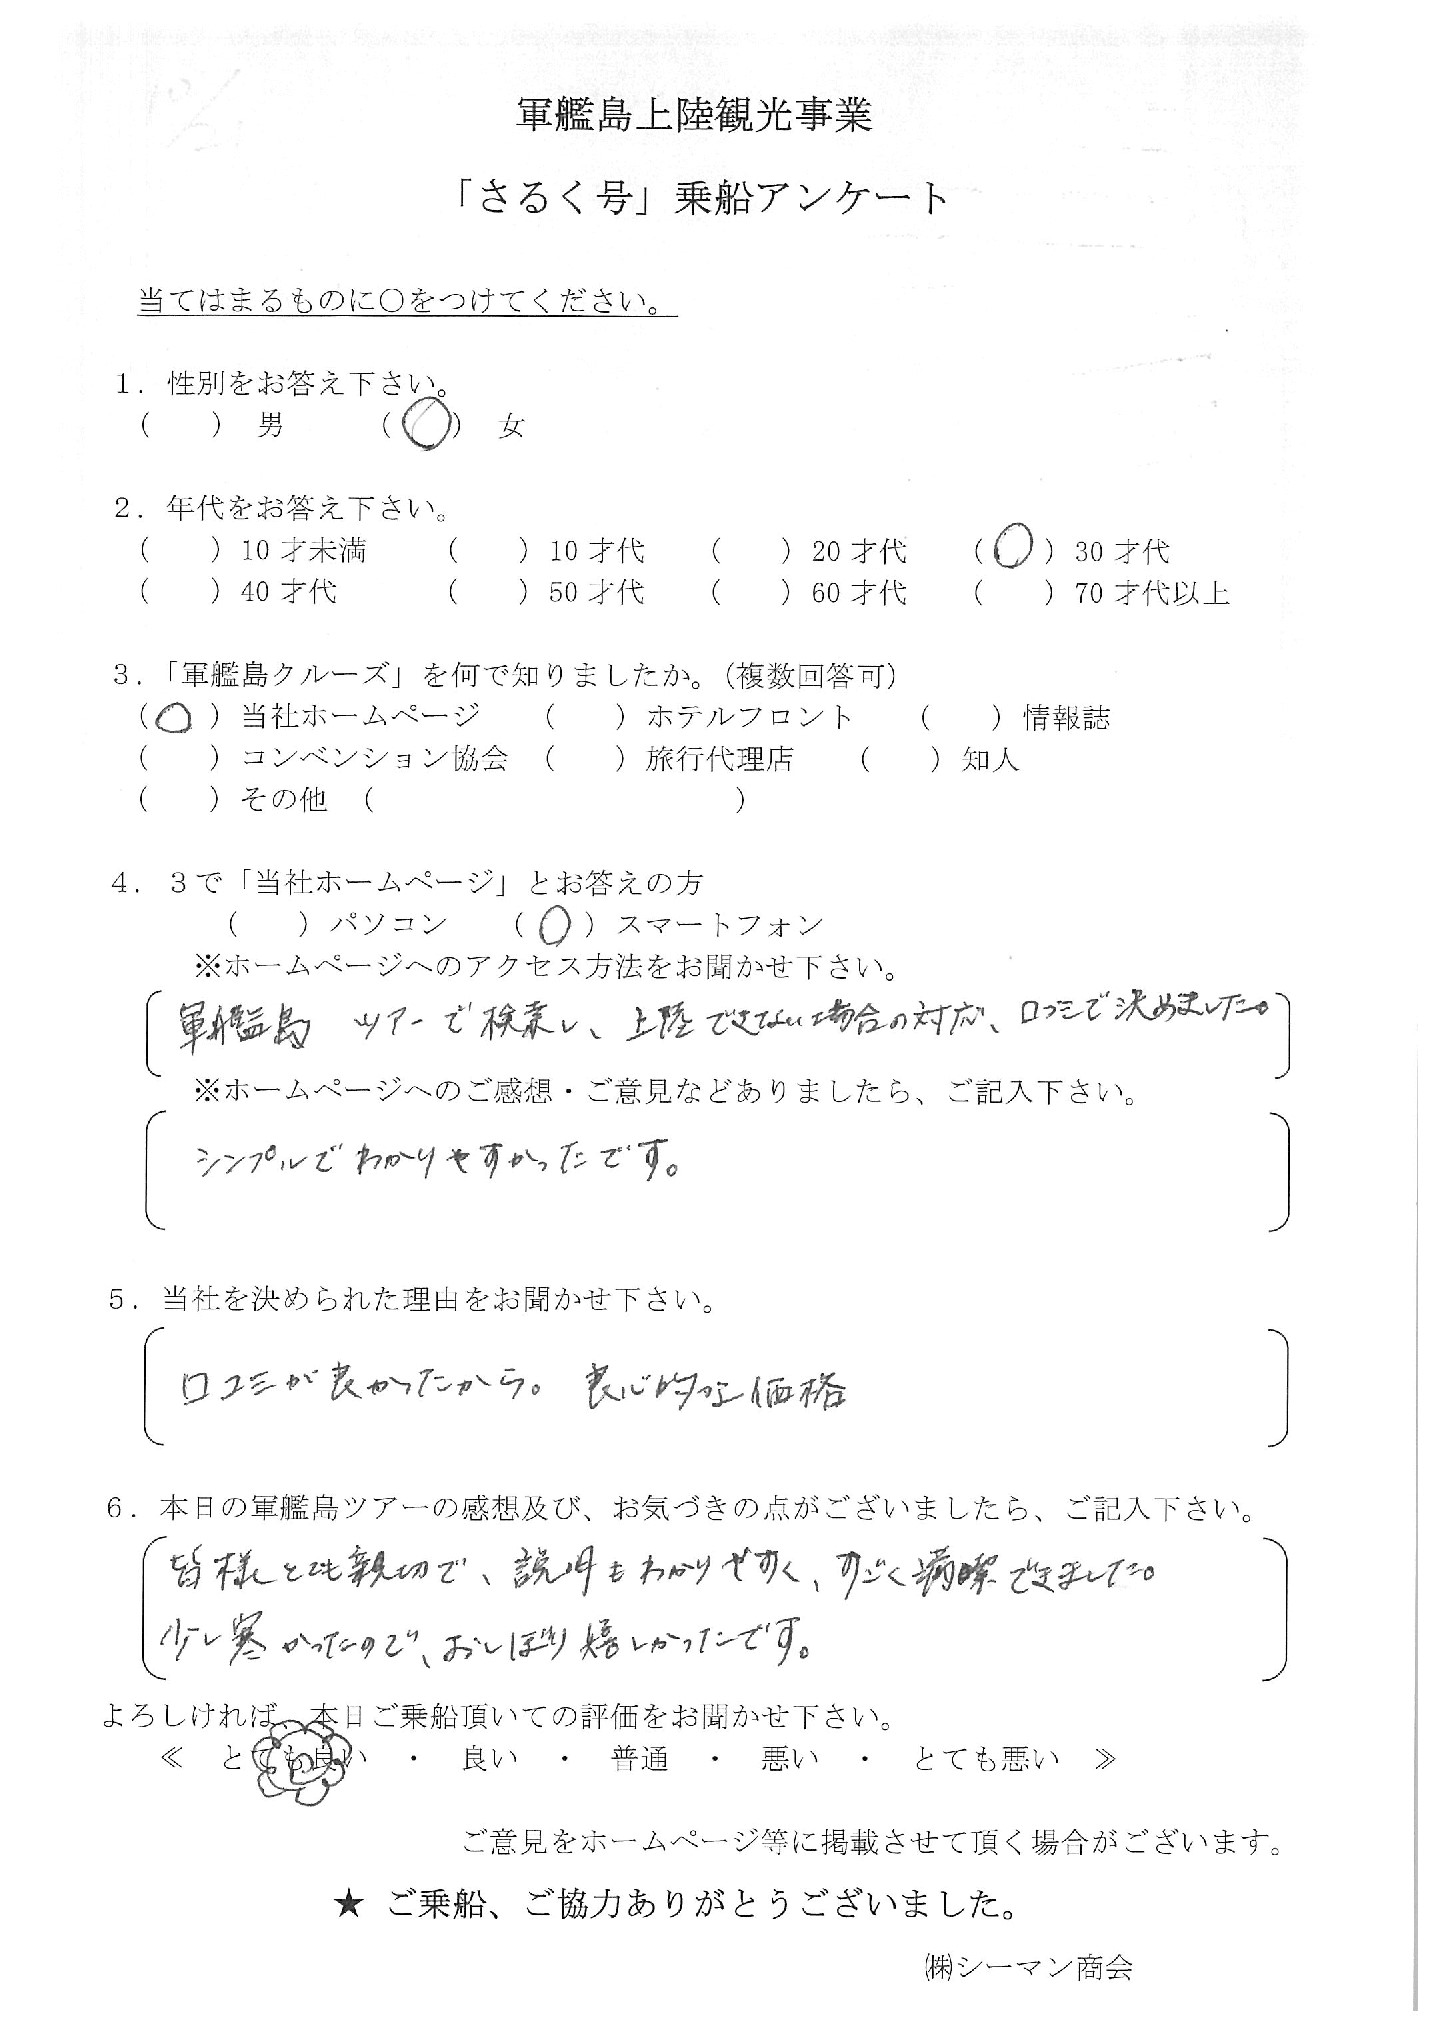 軍艦島上陸観光事業
「さるく号」乗船アンケート
当てはまるものに〇をつけてください。
１．性別をお答え下さい。
（　　）　男　　　（○）　女
２．年代をお答え下さい。
（　　）10才未満　　（　　）10才代　　（　　）20才代　　（○）30才代
（　　）40才代　　（　　）50才代　　（　　）60才代　　（　　）70才代以上
３．「軍艦島クルーズ」を何で知りましたか。（複数回答可）
（○）当社ホームページ　　（　　）ホテルフロント　　（　　）情報誌
（　　）コンベンション協会　（　　）旅行代理店　　（　　）知人
（　　）その他　（　　　　　　　　　　　　）
４．３で「当社ホームページ」とお答えの方
（　　）パソコン　　（○）スマートフォン
※ホームページへのアクセス方法をお聞かせ下さい。
軍艦島　ツアーで検索し、上陸できない場合の対応、口コミで決めました。
※ホームページへのご感想・ご意見などありましたら、ご記入下さい。
シンプルでわかりやすかったです。
５．当社を決められた理由をお聞かせ下さい。
口コミが良かったから。　良心的な価格
６．本日の軍艦島ツアーの感想及び、お気づきの点がございましたら、ご記入下さい。
皆様とても親切で、説明もわかりやすく、すごく満喫できました。
少し寒かったので、おしぼり嬉しかったです。
よろしければ、本日ご乗船頂いての評価をお聞かせ下さい。
≪　とても良い　・　良い　・　普通　・　悪い　・　とても悪い　≫
ご意見をホームページ等に掲載させて頂く場合がございます。
★ ご乗船、ご協力ありがとうございました。
㈱シーマン商会